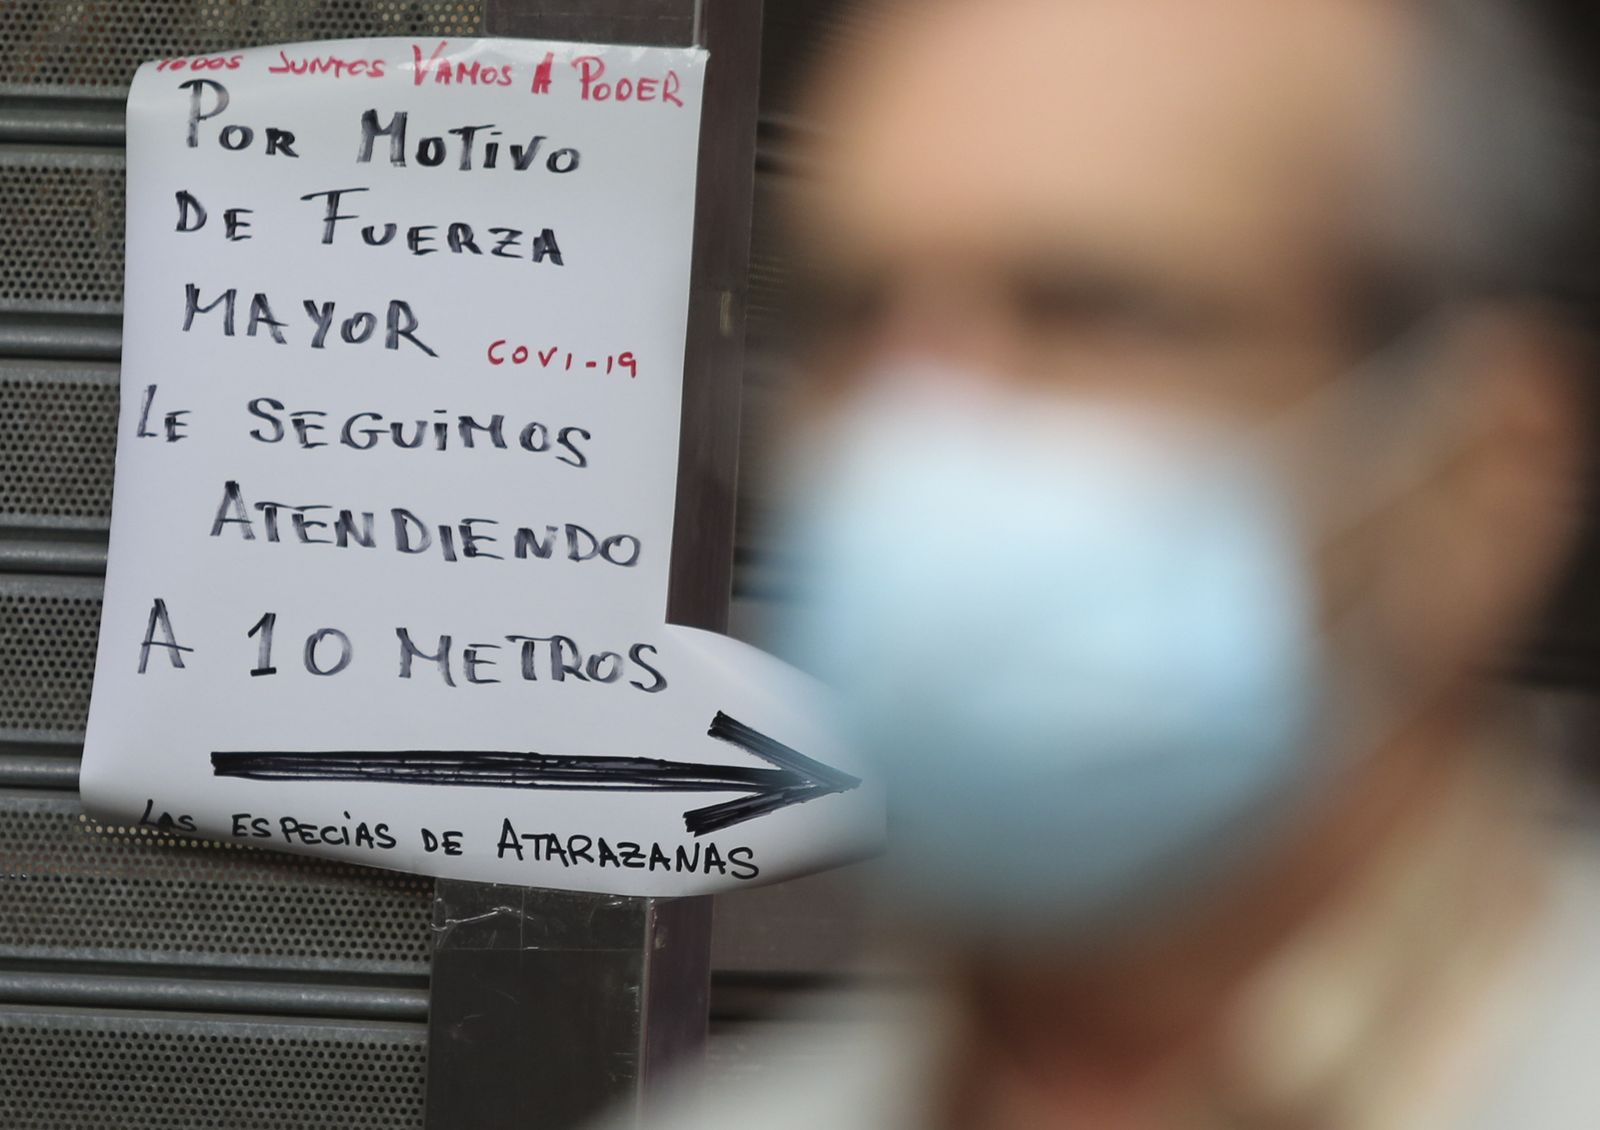 TODOS JUNTOS VAMOS A PODER
POR MOTIVO
DE FUERZA
MAYOR COVI-19
LE SEGUIMOS
ATENDIENDO
A 10 METROS
LAS ESPECIAS DE ATARAZANAS